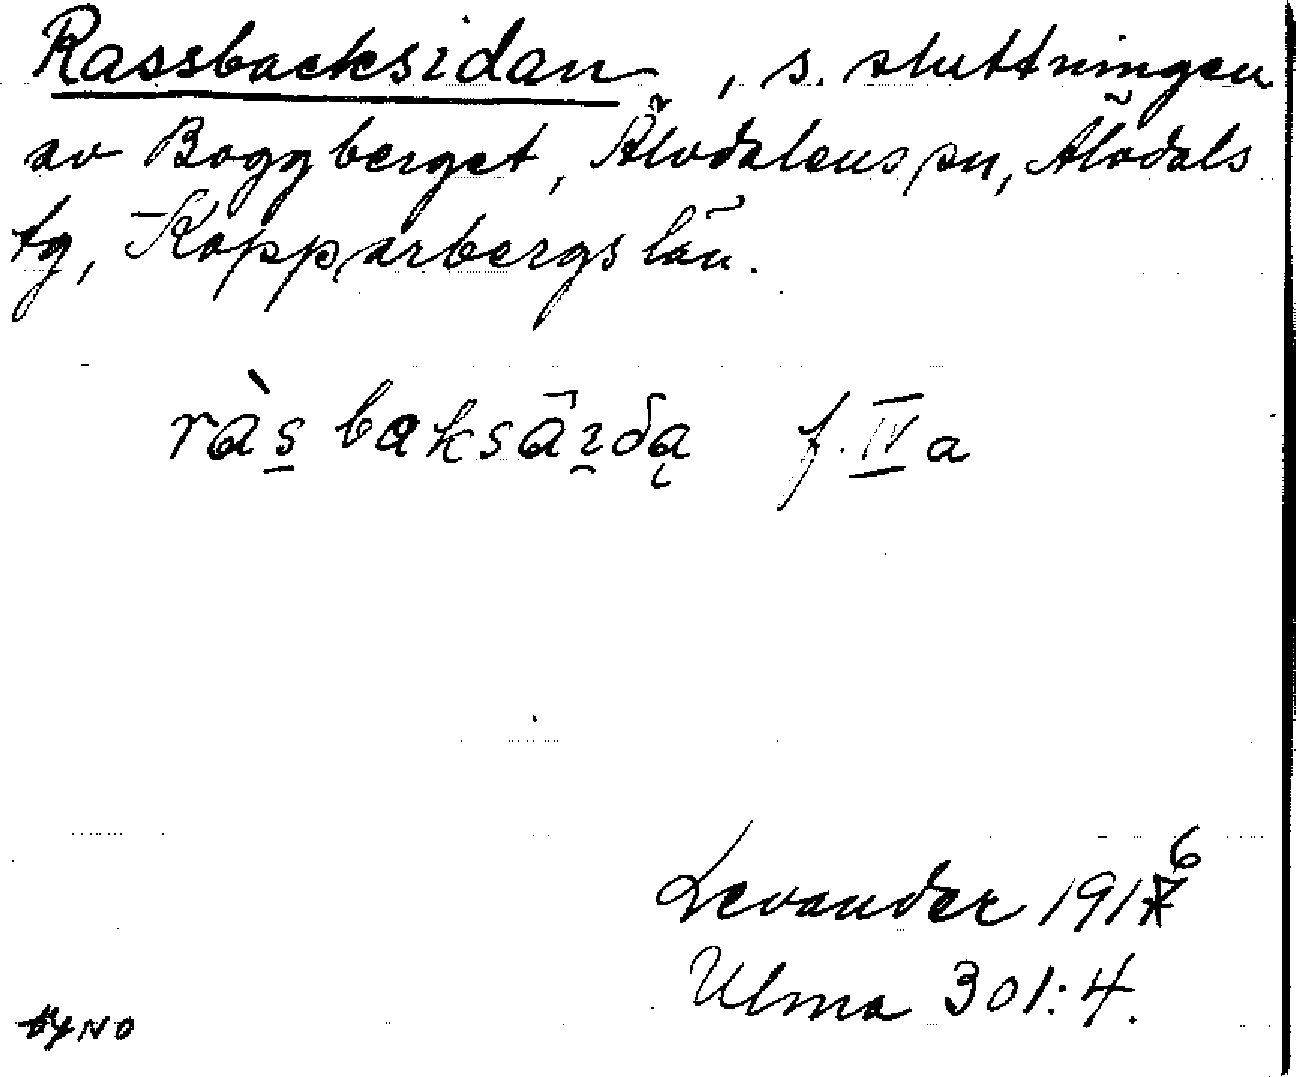 Rassbacksidan, s. sluttningen
av Boggberget, Älvdalens sn, Älvdals
tg, Kopparbergs län.
ràs̱baksā̂ı̯δą f. IV a
Levander 1916
Ulma 301:4.